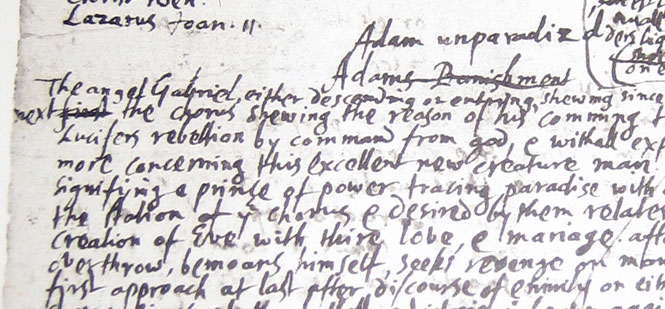 Lazarus Joan. 11.
Adam unparadiz'd
Adams Banishment
The angel Gabriel, either descending or entring, shewing since
next first the chorus shewing the reason of his comming
Lucifers rebellion by command from god, & withall
more concerning this excellent new creature man
signifying a prince of power tracing paradise with
the station of ye chorus & desired by them relate
creation of Eve with thire love, & mariage. aft
overthrow, bemoans himself, seeks revenge on man
first approach at last after discourse of enmity on eit